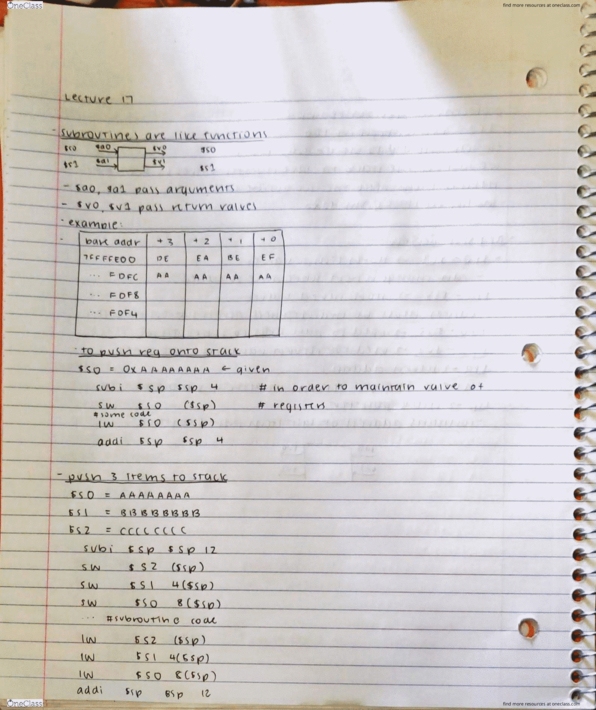 OneClass
find more resources at oneclass.com
Lecture 17
- subroutines are like functions
$s0 $a0 $v0 $s0
$s1 $a1 $v1 $s1
- $a0, $a1 pass arguments
- $v0, $v1 pass return values
- example:
base addr +3 +2 +1 +0
7FFFFE00 DE EA BE EF
... FDFC AA AA AA AA
... FDF8
... FDF4
- to push reg onto stack
$s0 = 0xAAAAAAAA ← given
subi $sp $sp 4 # in order to maintain value of
sw $s0 ($sp) # registers
#some code
lw $s0 ($sp)
addi $sp $sp 4
- push 3 items to stack
$s0 = AAAAAAAA
$s1 = BBBBBBBB
$s2 = CCCCCCCC
subi $sp $sp 12
sw $s2 ($sp)
sw $s1 4($sp)
sw $s0 8($sp)
... #subroutine code
lw $s2 ($sp)
lw $s1 4($sp)
lw $s0 8($sp)
addi $sp $sp 12
OneClass
find more resources at oneclass.com